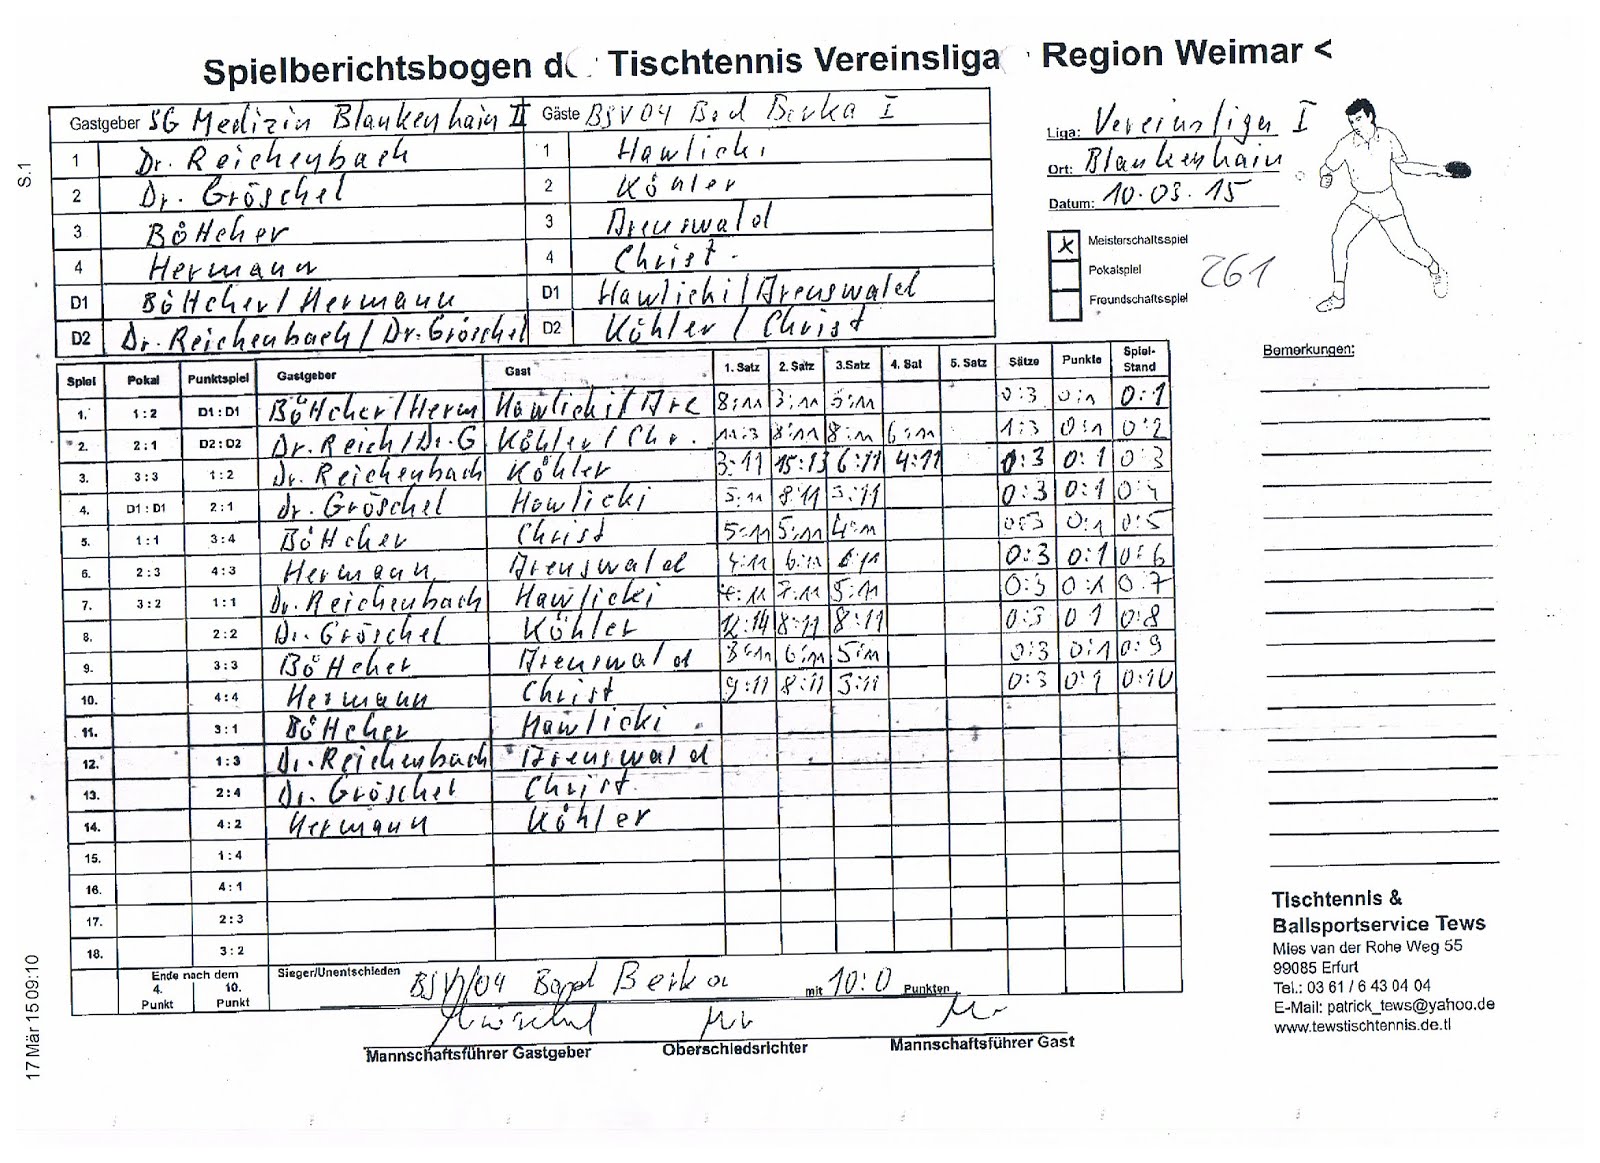 Spielberichtsbogen d Tischtennis Vereinsliga Region Weimar <
Gastgeber SG Medizin Blankenhain II Gäste BSV 04 Bad Berka I
1 Dr. Reichenbach 1 Hawlicki
2 Dr. Gröschel 2 Köhler
3 Böttcher 3 Arenswald
4 Hermann 4 Christ
D1 Böttcher/Hermann D1 Hawlicki/Arenswald
D2 Dr. Reichenbach/Dr. Gröschel D2 Köhler/Christ
Liga: Vereinsliga I
Ort: Blankenhain
Datum: 10.03.15
x Meisterschaftsspiel
Pokalspiel
Freundschaftsspiel
261
S.1
Spiel Pokal Punktspiel Gastgeber Gast 1. Satz 2. Satz 3.Satz 4. Sat 5. Satz Sätze Punkte Spiel-Stand
1. 1:2 D1:D1 Böttcher/Herm Hawlicki/Are 8:11 3:11 5:11 0:3 0:1 0:1
2. 2:1 D2:D2 Dr.Reich/Dr.G Köhler/Chr. 11:3 8:11 8:11 6:11 1:3 0:1 0:2
3. 3:3 1:2 Dr. Reichenbach Köhler 3:11 15:13 6:11 4:11 0:3 0:1 0:3
4. D1:D1 2:1 dr. Gröschel Hawlicki 5:11 8:11 5:11 0:3 0:1 0:4
5. 1:1 3:4 Böttcher Christ 5:11 5:11 4:11 0:3 0:1 0:5
6. 2:3 4:3 Hermann Arenswald 4:11 6:11 6:11 0:3 0:1 0:6
7. 3:2 1:1 Dr. Reichenbach Hawlicki 7:11 5:11 0:3 0:1 0:7
8. 2:2 Dr. Gröschel Köhler 12:14 8:11 8:11 0:3 0 1 0:8
9. 3:3 Böttcher Arenswald 8:11 6:11 5:11 0:3 0:1 0:9
10. 4:4 Hermann Christ 9:11 8:11 3:11 0:3 0:1 0:10
11. 3:1 Böttcher Hawlicki
12. 1:3 Dr. Reichenbach Arenswald
13. 2:4 Dr. Gröschel Christ
14. 4:2 Hermann Köhler
15. 1:4
16. 4:1
17. 2:3
18. 3:2
Ende nach dem
4. 10.
Punkt Punkt
Sieger/Unentschieden BSV/04 Bad Berka mit 10:0 Punkten
Gröschel
Mannschaftsführer Gastgeber Oberschiedsrichter Mannschaftsführer Gast
Bemerkungen:
Tischtennis &
Ballsportservice Tews
Mies van der Rohe Weg 55
99085 Erfurt
Tel.: 03 61 / 6 43 04 04
E-Mail: patrick_tews@yahoo.de
www.tewstischtennis.de.tl
17 Mär 15 09:10